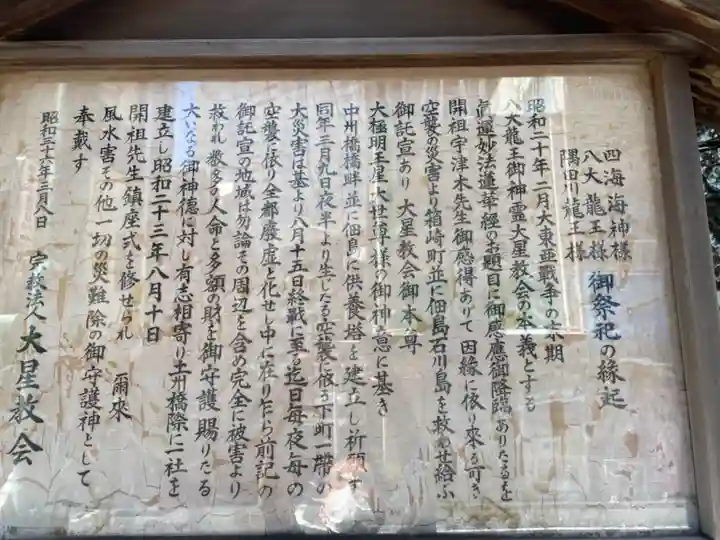 四海海神様
八大龍王様
隅田川龍王様
御祭祀の縁起
昭和二十年二月大東亜戦争の末期
八大龍王御神霊大星教会の本義とする
眞運妙法蓮華經のお題目に御感應御降臨ありたるを
開祖宇津木先生御感得ありて因縁に依り來る可き
空襲の災害より箱崎町並に佃島石川島を救わせ給ふ
御託宣あり大星教会御本尊
大極明王星大世尊様の御神意に基き
中州橋橋畔並に佃島に供養塔を建立し祈願す
同年三月九日夜半より生じたる空襲に依る下町一帶の
大災害は基より八月十五日終戰に至る迄日毎夜毎の
空襲に依り全都廢虚と化せし中に在りたら前記の
御託宣の地域は勿論その周辺を含め完全に被害より
救われ数多の人命と多額の財を御守護賜りたる
大いなる御神徳に対し有志相寄り土州橋際に一社を
建立し昭和二十三年八月十日
開祖先生鎮座式を修せられ 爾來
風水害その他一切の災難除の御守護神として
奉戴す
昭和三十六年三月八日
宗教法人 大星教会